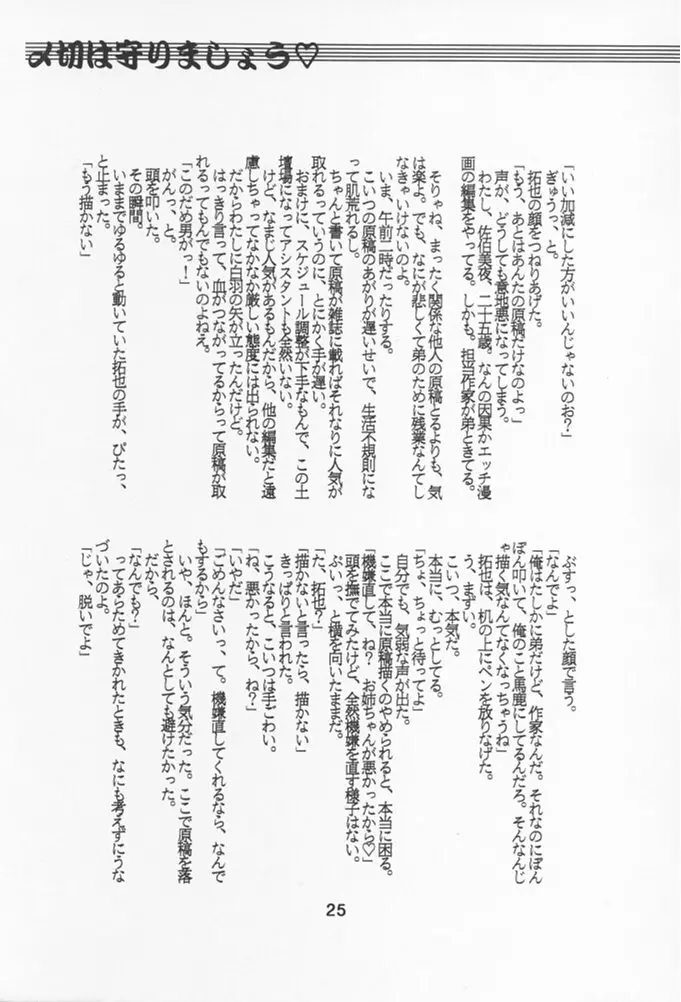 〆切は守りましょう♡
「いい加減にした方がいいんじゃないのお?」
ぎゅうっ、と。
拓也の顔をつねりあげた。
「もう、あとはあんたの原稿だけなのよっ」
声が、どうしても意地悪になってしまう。
わたし、佐伯美夜、二十五歳。なんの因果かエッチ漫
画の編集をやってる。しかも、担当作家が弟ときてる。
そりゃね、まったく関係な他人の原稿とるよりも、気
は楽よ。でも、なにが悲しくて弟のために残業なんてし
なきゃいけないのよ。
いま、午前二時だったりする。
こいつの原稿のあがりが遅いせいで、生活不規則にな
って肌荒れるし。
ちゃんと書いて原稿が雑誌に載ればそれなりに人気が
取れるっていうのに、とにかく手が遅い。
おまけに、スケジュール調整が下手なもんで、この土
壇場になってアシスタントも全然いない。
けど、なまじ人気があるもんだから、他の編集だと遠
慮しちゃってなかなか厳しい態度には出られない。
だからわたしに白羽の矢が立ったんだけど。
はっきり言って、血がつながってるからって原稿が取
れるってもんでもないのよねえ。
「このだめ男がっ!」
がんっ、と。
頭を叩いた。
その瞬間。
いままでゆるゆると動いていた拓也の手が、ぴたっ、
と止まった。
「もう描かない」
ぶすっ、とした顔で言う。
「なんでよ」
「俺はたしかに弟だけど、作家なんだ。それなのにぽん
ぽん叩いて、俺のこと馬鹿にしてるんだろ。そんなんじ
ゃ描く気なんてなくなっちゃうね」
拓也は、机の上にペンを放りなげた。
う、まずい。
こいつ、本気だ。
本当に、むっとしてる。
「ちょ、ちょっと待ってよ」
自分でも、気弱な声が出た。
ここで本当に原稿描くのやめられると、本当に困る。
「機嫌直して、ね? お姉ちゃんが悪かったから♡」
頭を撫でてみたけど、全然機嫌を直す様子はない。
ぷいっ、と横を向いたままだ。
「た、拓也?」
「描かないと言ったら、描かない」
きっぱりと言われた。
こうなると、こいつは手ごわい。
「ね、悪かったから、ね?」
「いやだ」
「ごめんなさいっ、て。機嫌直してくれるなら、なんで
もするから」
いや、ほんと。そういう気分だった。ここで原稿を落
とされるのは、なんとしても避けたかった。
だから、
「なんでも?」
ってあらためてきかれたときも、なにも考えずにうな
づいたのよ。
「じゃ、脱いでよ」
25